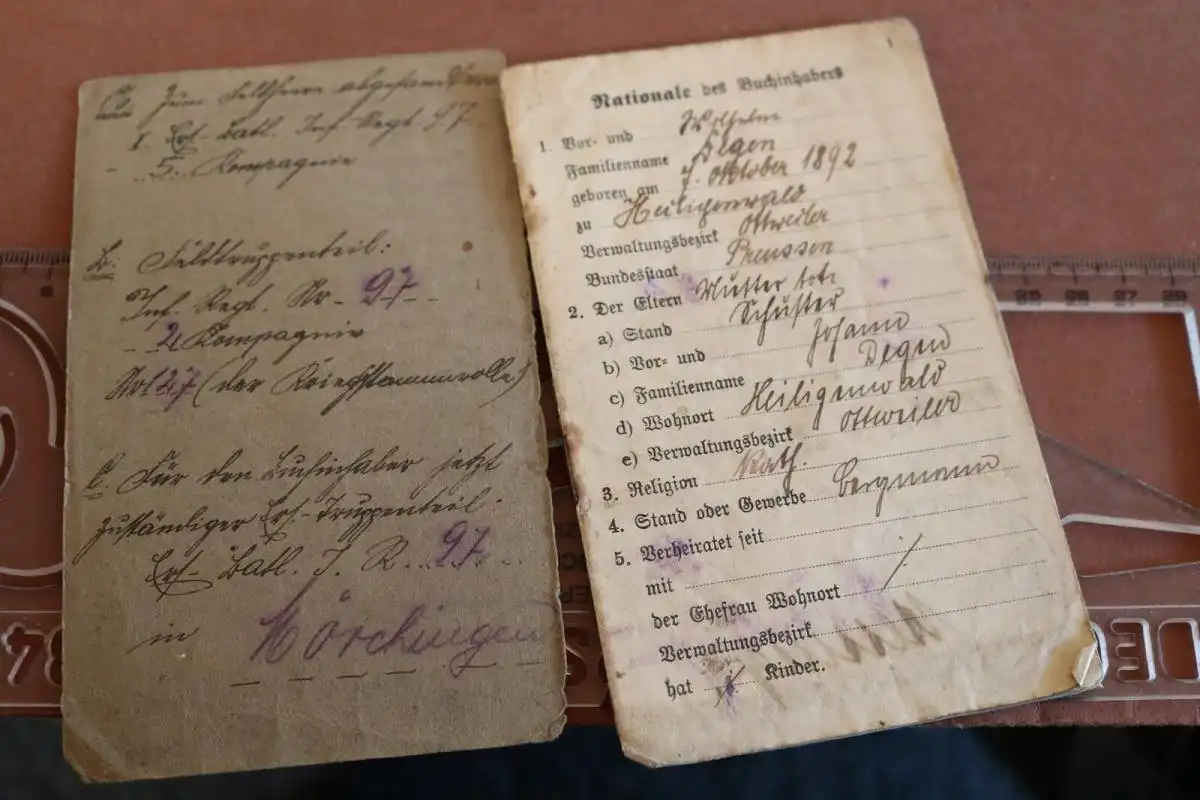 a. Zum Feldheere abgesandt von
I. Ers. Batl. Inf. Regt. 97
5. Kompagnie
b. Feldtruppenteil:
Inf. Regt. Nr. 97
2 Kompagnie
Nr. 127 (der Kriegsstammrolle)
c. Für den Buchinhaber jetzt
zuständiger Ers.-Truppenteil:
Ers. Batl. I. R. 97.
in Mörchingen
1
Nationale des Buchinhabers
1. Vor- und Wilhelm
Familienname Degen
geboren am 7. Oktober 1892
zu Heiligenwald
Verwaltungsbezirk Ottweiler
Bundesstaat Preussen
2. Der Eltern Mutter tot
a) Stand Schuster
b) Vor- und Johann
c) Familienname Degen
d) Wohnort Heiligenwald
e) Verwaltungsbezirk Ottweiler
3. Religion Kath.
4. Stand oder Gewerbe Bergmann
5. Verheiratet seit
mit
der Ehefrau Wohnort /
Verwaltungsbezirk
hat Kinder.
25 26 27 28
84
DE